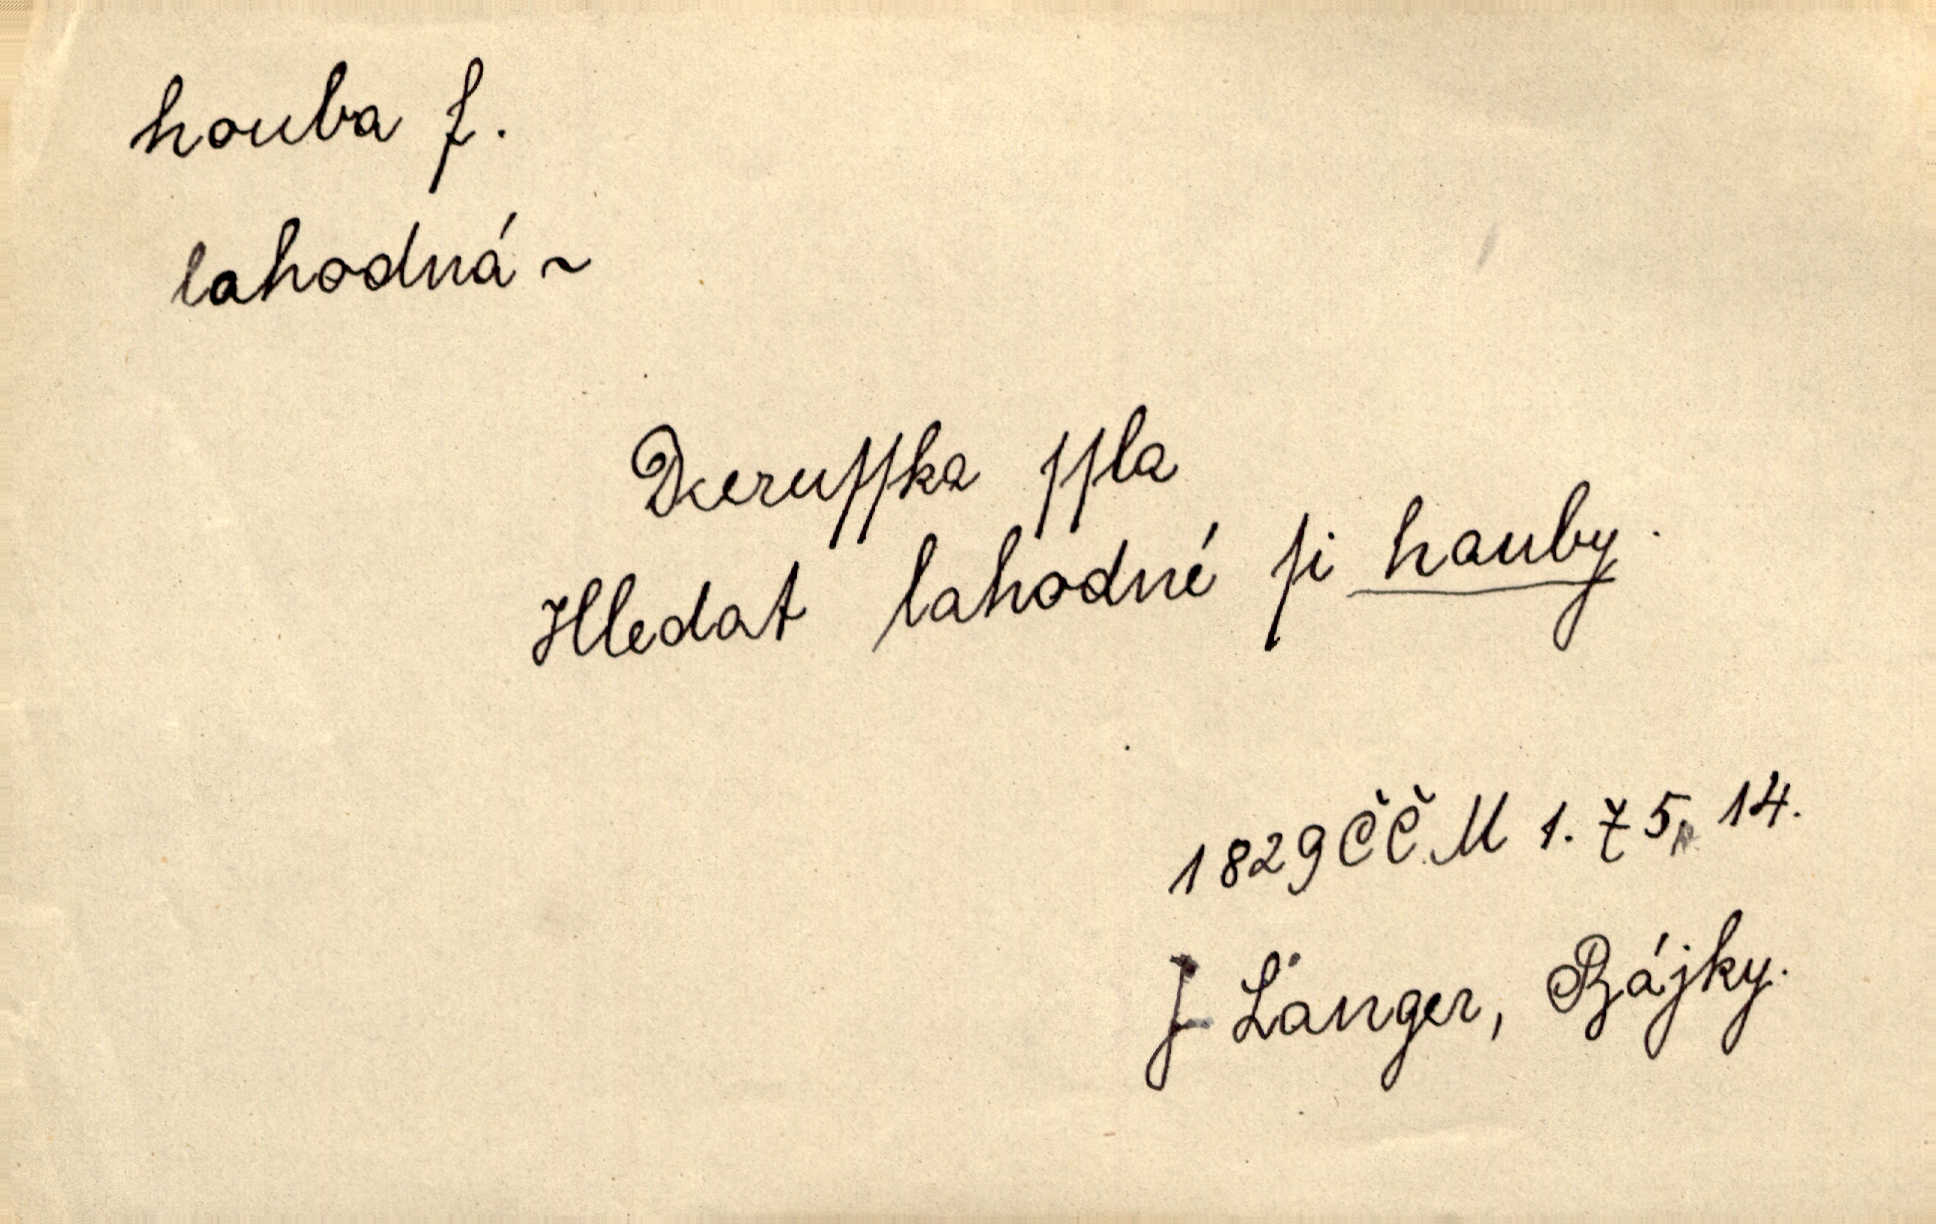 houba f.
lahodná ~
Dceruſſka ſſla
Hledat lahodné ſi hauby.
1829 ČČM 1. 75, 14.
J Langer, Bájky.